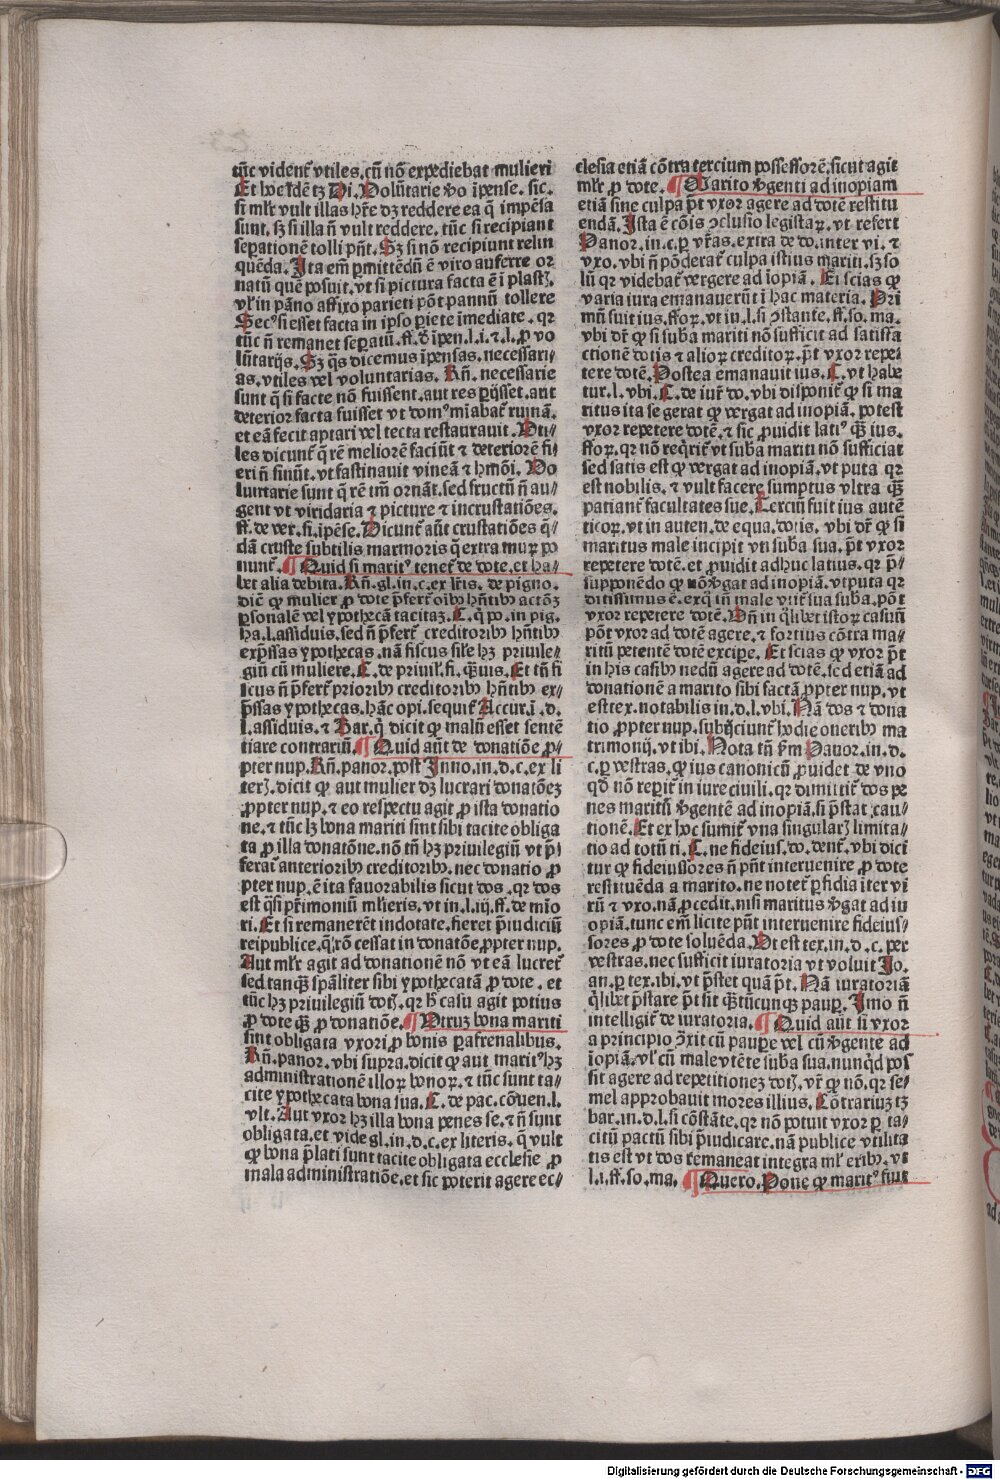 tūc vident᷑ vtiles.cū nō expediebat mulieri
Et hoc idē tȝ Di. Volūtarie ꝟo īpense. sic.
si mlr̄ vult illas hr̄e dȝ reddere ea q̄ impēsa
sunt. sȝ si illa n̄ vult reddere. tūc si recipiant
sepationē tolli pn̄t. Sȝ si nō recipiunt relin
quēda. Ita em̄ ꝑmittēdū ē viro auferre or
natū quē posuit. vt si pictura facta ē ī plastȝ.
vl' in pāno affixo parieti pōt pannū tollere
Secꝰ si esset facta in ip̄o ꝑiete īmediate. qꝛ
tūc n̄ remanet seꝑatū. ff. ď īpen. l. i. ⁊ l. ꝓ vo
lūtarijs. Sȝ q̄s dicemus īpensas. necessari⸗
as. vtiles vel voluntarias. Rn̄. necessarie
sunt q̄ si facte nō fuissent. aut res ꝑijsset. aut
deterior facta fuisset vt domꝰ mīabat᷑ ruinā.
et eā fecit aptari vel tecta restaurauit. Vti⸗
les dicunt᷑ q̄ rē meliorē faciūt ⁊ deteriorē fi⸗
eri n̄ sinūt. vt fastinauit vineā ⁊ hmōi. Vo
luntarie sunt q̄ rē tm̄ ornāt. sed fructū n̄ au⸗
gent vt viridaria ⁊ picture ⁊ incrustatiōes.
ff. de ver. si. ipēse. Dicunt᷑ aūt crustatiōes q̄⸗
dā cruste subtilis marmoris q̄ extra muꝝ po
nunt᷑. ¶ Quid si maritꝰ tenet᷑ de dote. et ha⸗
bet alia debita. Rn̄. gl. in. c. ex lr̄is. de pigno.
diē ꝙ mulier ꝓ dote p̄fert᷑ oībꝯ hn̄tibꝯ actōȝ
ꝑsonalē vel ypothecā tacitaȝ. C. q̄ po. in pig.
ha. l. assiduis. sed n̄ p̄fert᷑ creditoribꝯ hn̄tibꝯ
exp̄ssas ypothecas. nā fiscus sil'e hȝ priuile⸗
giū cū muliere. C. de priuil'. fi. q̄uis. Et tn̄ fi
scus n̄ p̄fert᷑ prioribꝯ creditoribꝯ hn̄tibꝯ ex⸗
p̄ssas ypothecas. hāc opi. sequit᷑ Accur. ī. d.
l. assiduis. ⁊ Bar. q̄ dicit ꝙ malū esset sentē
tiare contrariū. ¶ Quid aūt de donatiōe ꝓ⸗
pter nup. Rn̄. panor. post Inno. in. d. c. ex li
terȝ. dicit ꝙ aut mulier dȝ lucrari donatōeȝ
ꝓpter nup. ⁊ eo respectu agit ꝓ ista donatio
ne. ⁊ tūc lȝ bona mariti sint sibi tacite obliga
ta ꝓ illa donatōne. nō tn̄ hȝ priuilegiū vt p̄
ferat᷑ anterioribꝯ creditoribꝯ. nec donatio ꝓ
pter nup. ē ita fauorabilis sicut dos. qꝛ dos
est q̄si pr̄imoniū mlieris. vt in. l. iij. ff. de mīo
ri. Et si remanerēt indotate. fieret p̄iudiciū
reipublice. q̄ rō cessat in donatōe ꝓpter nup.
Aut mlr̄ agit ad donationē nō vt eā lucret᷑
sed tanq̄ȝ spāliter sibi ypothecatā ꝓ dote. et
tūc hȝ priuilegiū dotȝ. qꝛ h̄ casu agit potius
ꝓ dote q̄ȝ ꝓ donatiōe. ¶ Vtruȝ bona mariti
sint obligata vxori ꝓ bonis ꝑafrenalibus.
Rn̄. panor. vbi supra. dicit ꝙ aut maritꝰ hȝ
administrationē illoꝝ bonoꝝ. ⁊ tūc sunt ta⸗
cite ypothecata bona sua. C. de pac. cōuen. l.
vlt. Aut vxor hȝ illa bona penes se. ⁊ n̄ sunt
obligata. et vide gl. in. d. c. ex literis. q̄ vult
ꝙ bona p̄lati sunt tacite obligata ecclesie ꝓ
mala administratiōe. et sic poterit agere ec⸗
clesia etiā cōtra tercium possessorē. sicut agit
mlr̄ ꝓ dote. ¶ Marito ꝟgenti ad inopiam
etiā sine culpa p̄t vxor agere ad dotē restitu
endā. Ista ē cōis ꝯclusio legistaꝝ. vt refert
Panor. in. c. ꝑ vr̄as. extra de do. inter vi. ⁊
vxo. vbi n̄ pōderat᷑ culpa istius mariti. sȝ so
lū qꝛ videbat᷑ vergere ad īopiā. Et scias ꝙ
varia iura emanauerūt ī hac materia. Pri
mū fuit ius. ffoꝝ. vt in. l. si ꝯstante. ff. so. ma.
vbi dr̄ ꝙ si suba mariti nō sufficit ad satisfa
ctionē dotis ⁊ alioꝝ creditoꝝ. p̄t vxor repe⸗
tere dotē. Postea emanauit ius. C. vt habe
tur. l. vbi. C. de iur̄. do. vbi disponit᷑ ꝙ si ma
ritus ita se gerat ꝙ vergat ad inopiā. potest
vxor repetere dotē. ⁊ sic ꝓuidit latiꝰ q̄ȝ ius.
ffoꝝ. qꝛ nō reqrit᷑ vt suba mariti nō sufficiat
sed satis est ꝙ vergat ad inopiā. vt puta qꝛ
est nobilis. ⁊ vult facere sumptus vltra q̄ȝ
patiant᷑ facultates sue. Terciū fuit ius autē
ticoꝝ. vt in auten. de equa. dotis. vbi dr̄ ꝙ si
maritus male incipit vti suba sua. p̄t vxor
repetere dotē. et ꝓuidit adhuc latius. qꝛ p̄⸗
supponēdo ꝙ nō ꝟgat ad inopiā. vt puta qꝛ
ditissimus ē. ex q̄ tn̄ male vtit᷑ sua suba. pōt
vxor repetere dotē. Vn̄ in q̄libet istoꝝ casuū
pōt vxor ad dotē agere. ⁊ fortius cōtra ma⸗
ritū petentē dotē excipe. Et scias ꝙ vxor p̄t
in his casibꝯ nedū agere ad dotē. sed etiā ad
donationē a marito sibi factā ꝓpter nup. vt
est tex. notabilis in. d. l. vbi. Nā dos ⁊ dona
tio ꝓpter nup. subijciunt᷑ hodie oneribꝯ ma
trimonij. vt ibi. Nota tn̄ fm̄ Panor. in. d.
c. ꝑ vestras. ꝙ ius canonicū ꝓuidet de vno
qd̄ nō reꝑit᷑ in iure ciuili. qꝛ dimittit᷑ dos pe
nes maritū ꝟgentē ad inopiā. si p̄stat cau⸗
tionē. Et ex hoc sumit᷑ vna singularȝ limita⸗
tio ad totū ti. C. ne fideius. do. dent᷑. vbi dici
tur ꝙ fideiussores n̄ pn̄t interuenire ꝓ dote
restituēda a marito. ne notet᷑ ꝑfidia iter vi
rū ⁊ vxo. nā ꝓcedit. nisi maritus ꝟgat ad in
opiā. tunc em̄ licite pn̄t interuenire fideius⸗
sores ꝓ dote soluēda. Vt est tex. in. d. c. per
vestras. nec sufficit iuratoria vt voluit Io.
an. ꝑ tex. ibi. vt p̄stet quā p̄t. Nā iuratoriā
q̄libet p̄stare p̄t sit q̄ȝtūcunqꝫ pauꝑ. Imo n̄
intelligit᷑ de iuratoria. ¶ Quid aūt si vxor
a principio ꝯ̄xit cū pauꝑe vel cū ꝟgente ad
īopiā. vl' cū male vtēte suba sua. nunqd pos
sit agere ad repetitioneȝ dotȝ. vr̄ ꝙ nō. qꝛ se⸗
mel approbauit mores illius. Cōtrariuȝ tȝ
bar. in. d. l. si cōstāte. qꝛ nō potuit vxor ꝑ ta⸗
citū pactū sibi p̄iudicare. nā publice vtilita
tis est vt dos remaneat integra ml'eribꝯ. vt
l. i. ff. so. ma. ¶ Quero. Pone ꝙ maritꝰ fuit
Digitalisierung gefördert durch die Deutsche Forschungsgemeinschaft - DFG